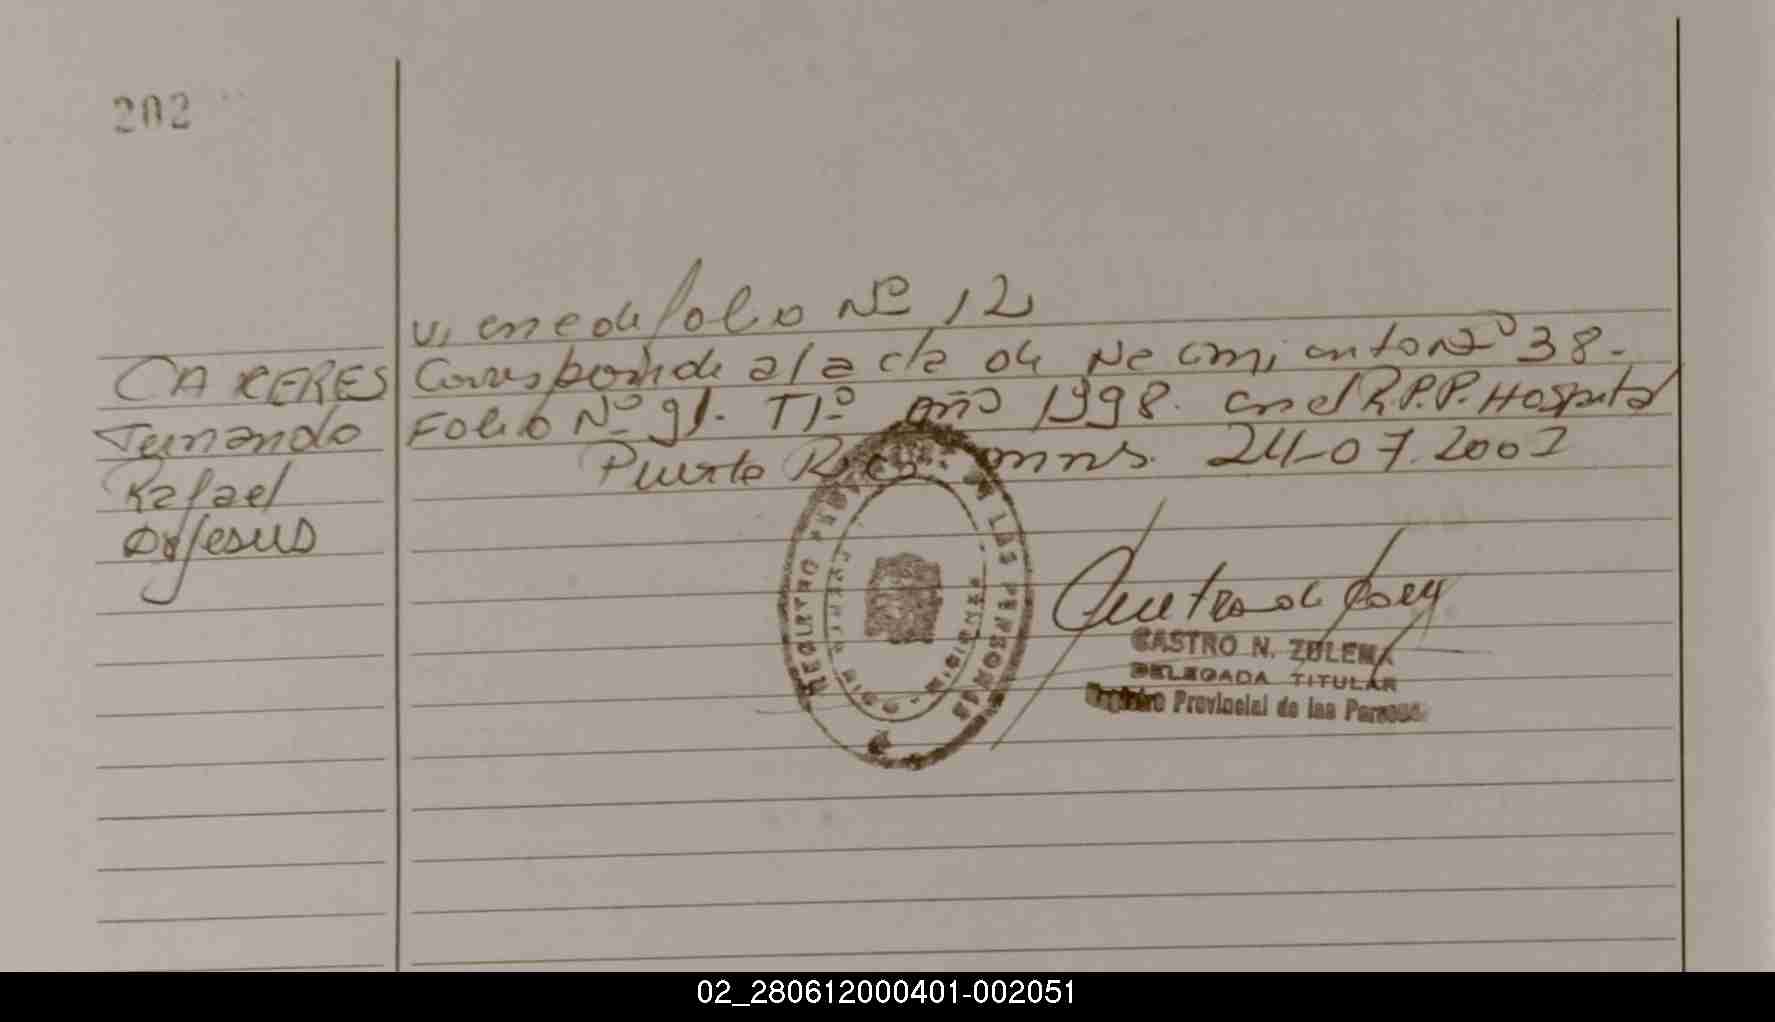 202
viene de folio Nº 12
CACERES
Corresponde al acta de Nacimiento Nº 38.
Fernando
Folio Nº 91. Tº 1º año 1998. en el R.P.P. Hospital
Rafael
Puerto Rico. mns. 24-07.2002
de Jesus
REGISTRO DE LAS PERSONAS
MISIONES
CASTRO N. ZULEMA
DELEGADA TITULAR
Registro Provincial de las Personas
02_280612000401-002051